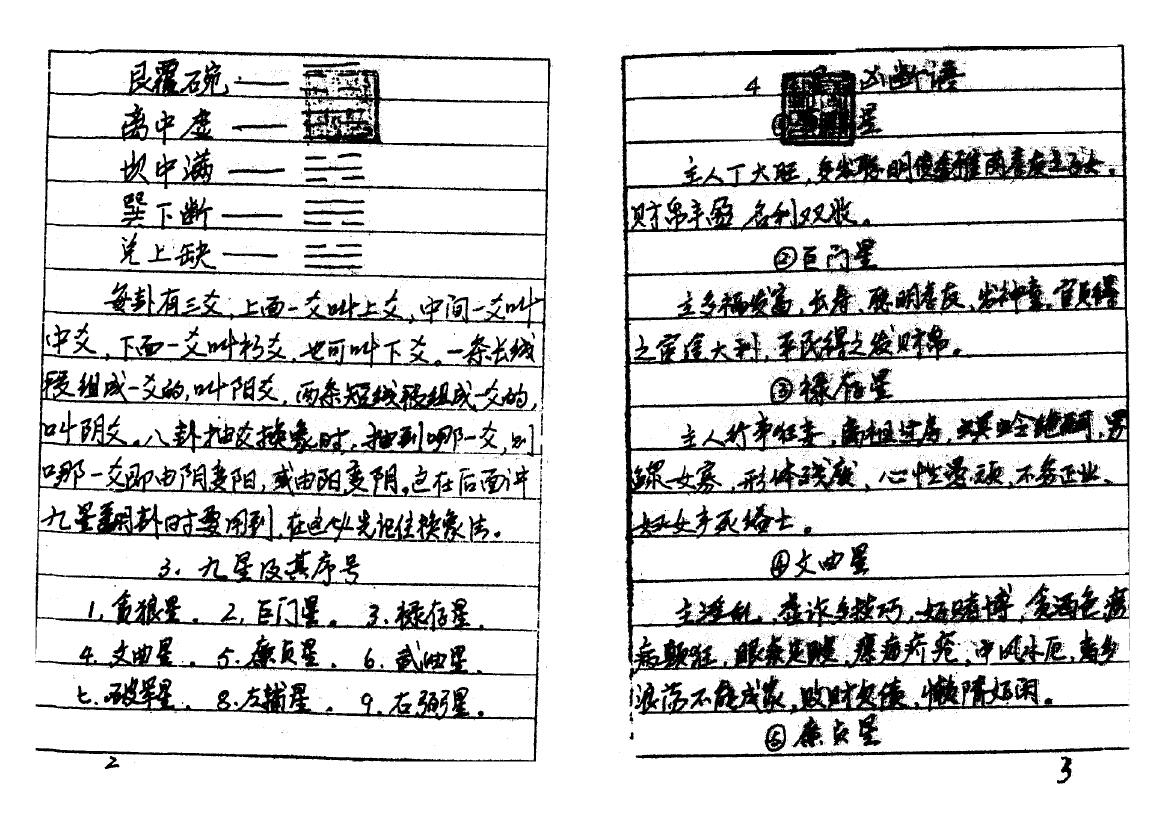 艮覆碗——
离中虚——
坎中满——
巽下断——
兑上缺——
每卦有三爻,上面一爻叫上爻,中间一爻叫
中爻,下面一爻叫初爻,也可叫下爻。一条长线
段组成一爻的,叫阳爻,两条短线段组成一爻的,
叫阴爻。八卦抽爻换象时,抽到哪一爻,则
哪一爻即由阴变阳,或由阳变阴。这在后面讲
九星翻卦时要用到,在这必先记住换象法。
3、九星及其序号
1、贪狼星。2、巨门星。3、禄存星。
4、文曲星。5、廉贞星。6、武曲星。
七、破军星。8、左辅星。9、右弼星。
2
4 凶断语
① 星
主人丁大旺,聪明
财帛丰盈 名利双收。
②巨门星
主多福发富,长寿,聪明孝友,发神童,官员得
之官途大利,平民得之发财帛。
③禄存星
主人行事狂妄,离祖过房,绝嗣,男
鳏女寡,形体残废,心性愚顽,不务正业,
妇女产死缢亡。
④文曲星
主淫乱,虚诈多技巧,好赌博,贪酒色,痨
病颠狂,眼疾足腿,疥疮,中风水厄,离乡
浪荡不能成家,败财欠债,懒惰好闲。
⑤廉贞星
3